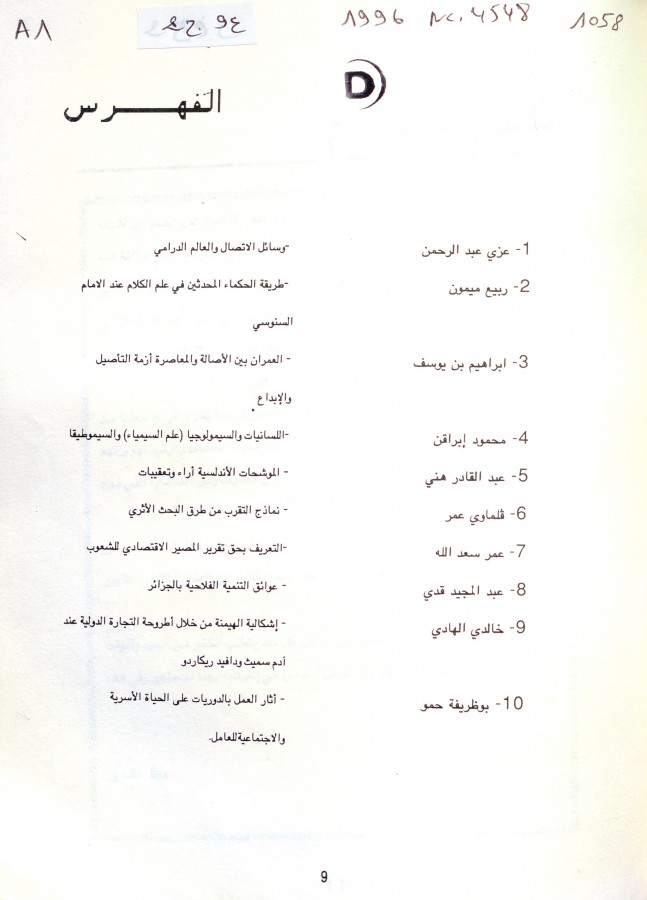 A1
1996 Nc. 4548 1058
D
الفهرس
1- عزي عبد الرحمن -وسائل الاتصال والعالم الدرامي
2- ربيع ميمون -طريقة الحكماء المحدثين في علم الكلام عند الامام
السنوسي
3- ابراهيم بن يوسف - العمران بين الأصالة والمعاصرة أزمة التأصيل
والإبداع
4- محمود إبراقن -اللسانيات والسيمولوجيا (علم السيمياء) والسيموطيقا
5- عبد القادر هني - الموشحات الأندلسية أراء وتعقيبات
6- ڤلماوي عمر - نماذج التقرب من طرق البحث الأثري
7- عمر سعد الله -التعريف بحق تقرير المصير الاقتصادي للشعوب
8- عبد المجيد قدي - عوائق التنمية الفلاحية بالجزائر
9- خالدي الهادي - إشكالية الهيمنة من خلال أطروحة التجارة الدولية عند
آدم سميث ودافيد ريكاردو
10- بوظريفة حمو - أثار العمل بالدوريات على الحياة الأسرية
والاجتماعية للعامل.
9